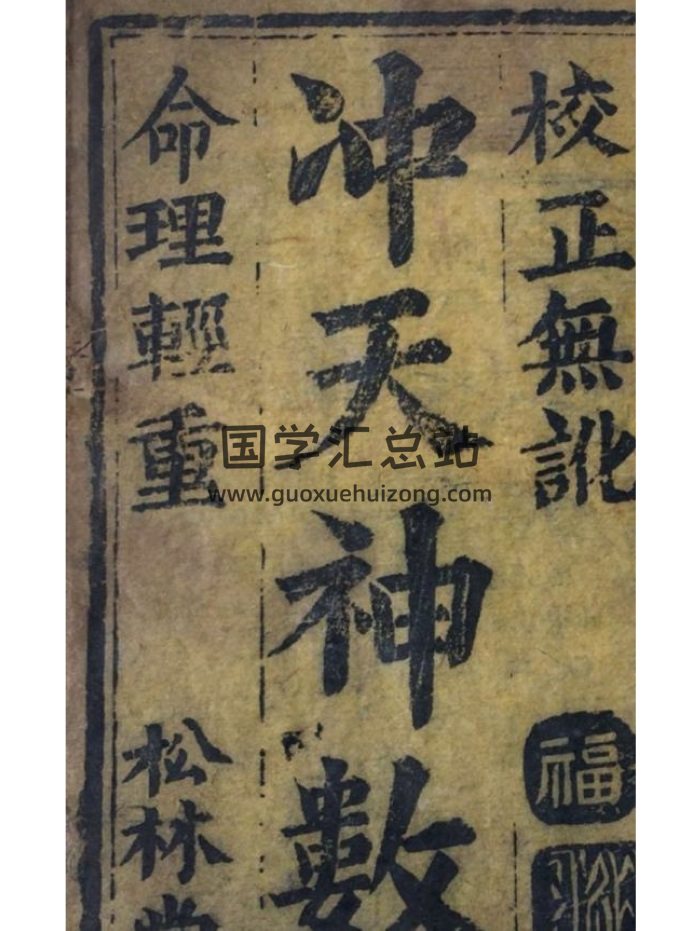 校正無訛
冲天神數
命理輕重
松林堂
福
国学汇总站
www.guoxuehuizong.com